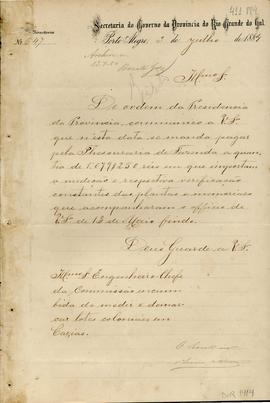 Secretaria do Governo da Provincia do Rio Grande do Sul
Nº 647
Porto Alegre, 2 de Julho de 1884
Illmo Sr.
De ordem da Presidencia
da Provincia, communico a V.S.
que n'esta data se manda pagar
pela Thesouraria de Fazenda a quan-
tia de reis em que importa
a medição e respectiva verificação
constantes das plantas e memoriaes
que acompanharam o officio de
V.S. de 13 de Maio findo.
Deus Guarde a V.S.
Illmo Sr. Engenheiro Chefe
da Commissão incum-
bida de medir e demar-
car lotes coloniaes em
Caxias